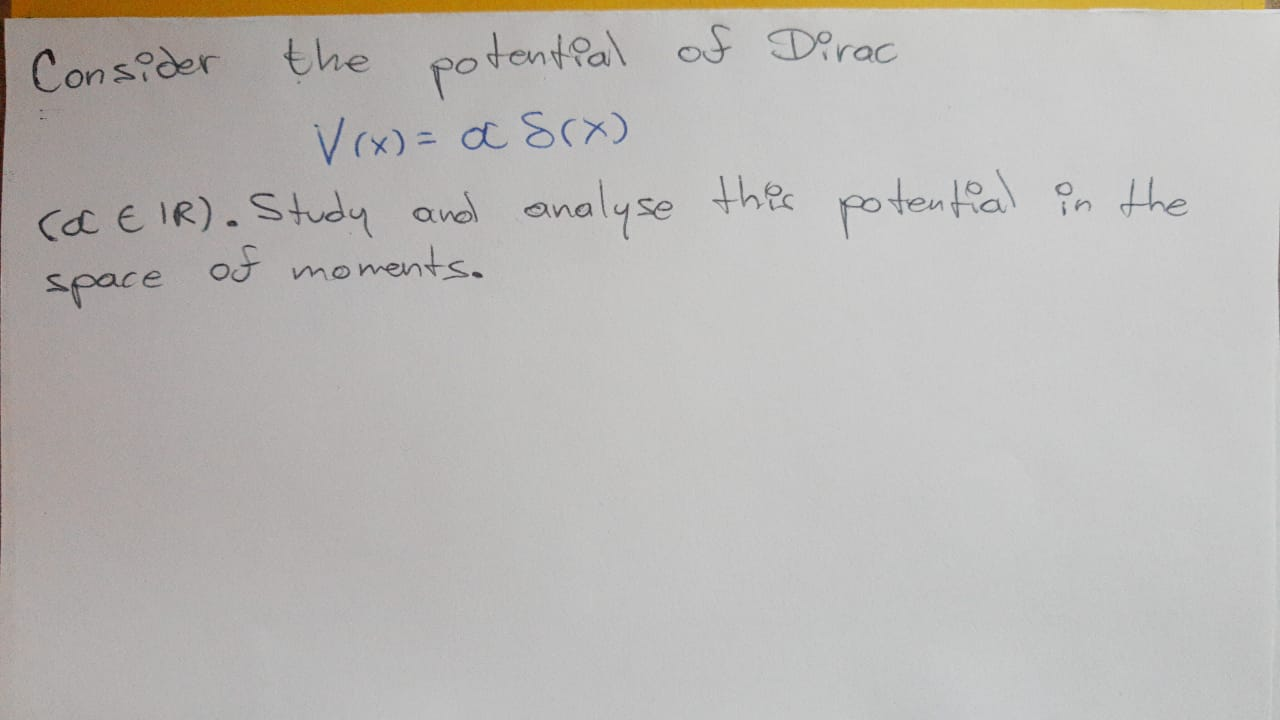 Consider the potential of Dirac
V(x) = α δ(x)
(α ∈ ℝ). Study and analyse this potential in the
space of moments.